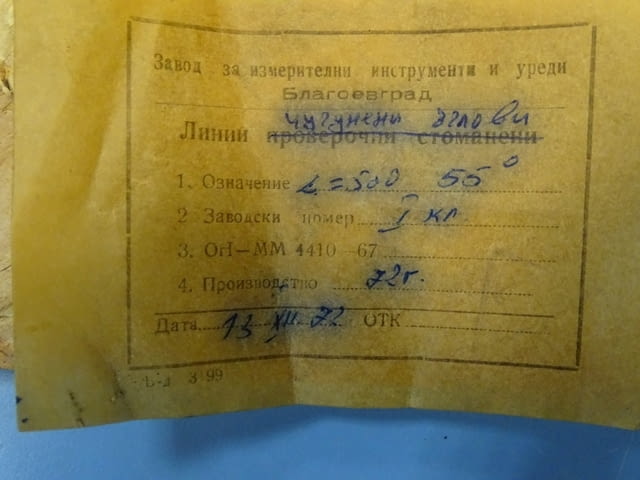 Завод за измерителни инструменти и уреди
Благоевград
чугунени ъглови
Линии проверочни стоманени
1. Означение L=500 55°
2 Заводски номер I кл.
3. ОН-ММ 4410-67
4. Производство 72г.
Дата 13 XII. 72 ОТК
3 99